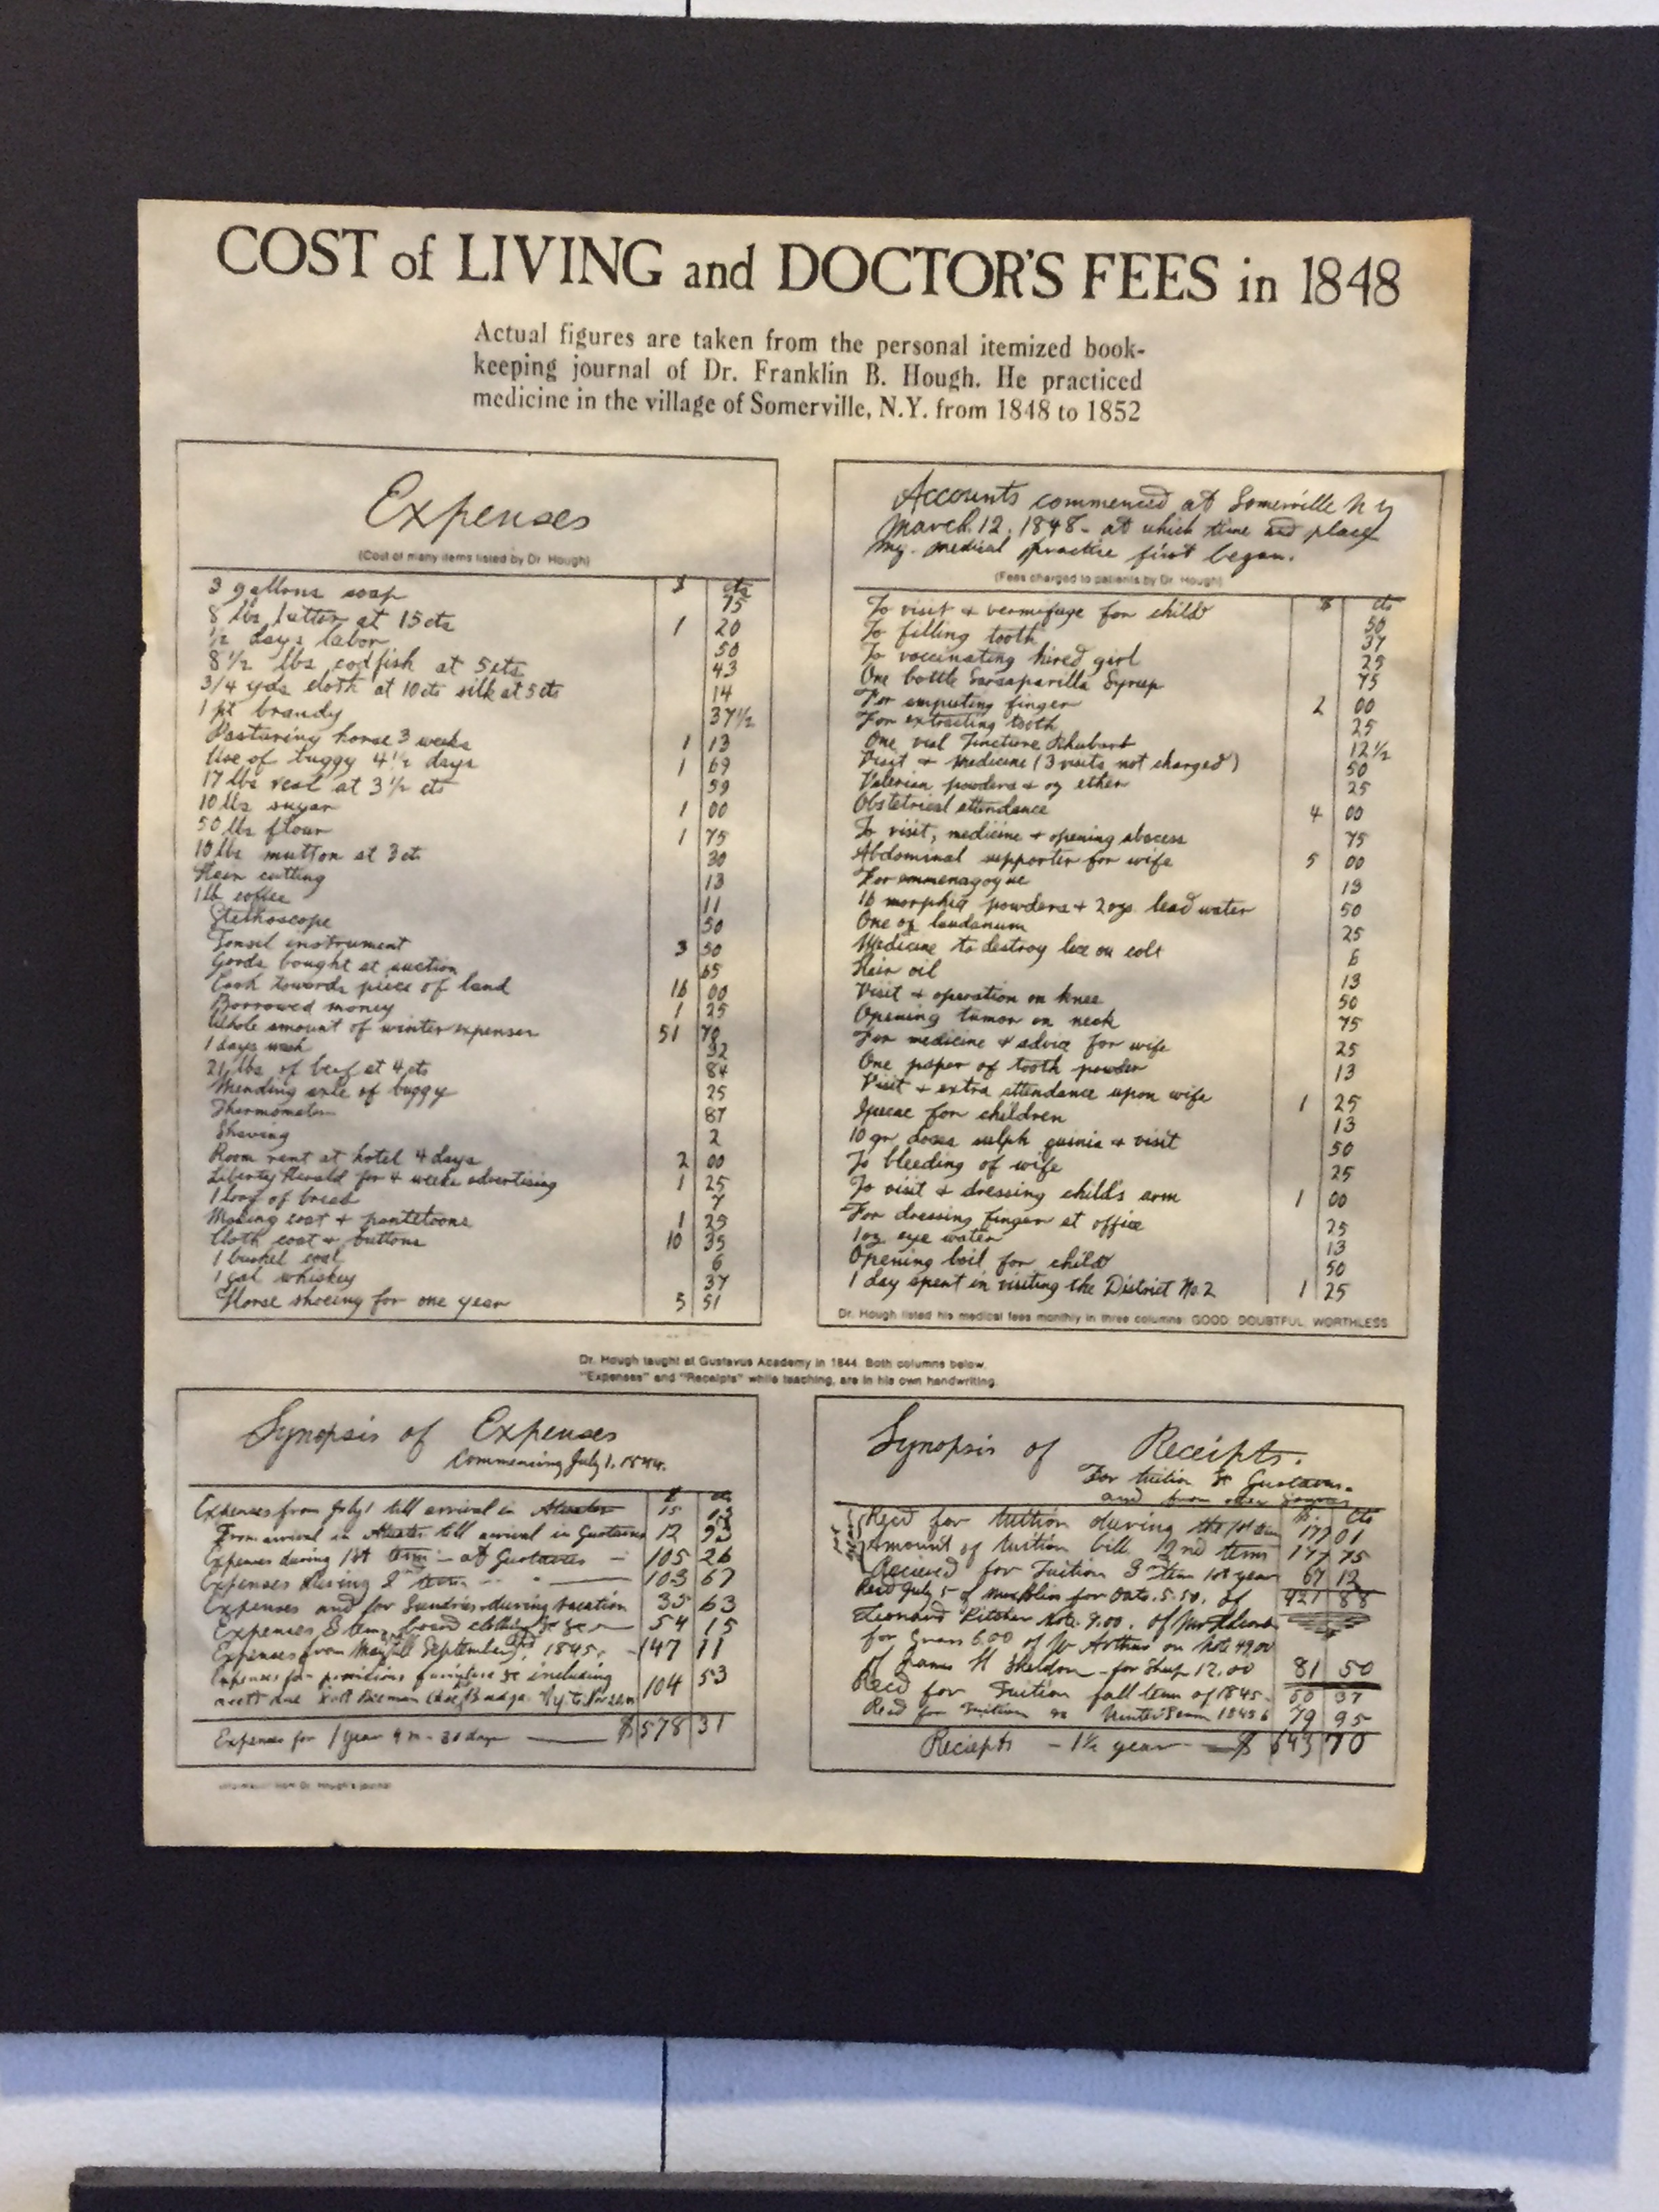 COST of LIVING and DOCTOR'S FEES in 1848
Actual figures are taken from the personal itemized book-
keeping journal of Dr. Franklin B. Hough. He practiced
medicine in the village of Somerville, N.Y. from 1848 to 1852
Expenses
(Cost of many items listed by Dr. Hough)
$ cts
3 gallons soap 75
8 lbs butter at 15 cts 1 20
1/2 days labor 50
8 1/2 lbs codfish at 5 cts 43
3/4 yds cloth at 10 cts silk at 5 cts 14
1 pt brandy 37 1/2
Pasturing horse 3 weeks 1 13
Use of buggy 4 1/2 days 1 69
17 lbs veal at 3 1/2 cts 59
10 lbs sugar 1 00
50 lbs flour 1 75
10 lbs mutton at 3 ct 30
Hair cutting 13
1 lb coffee 11
Stethoscope 50
Tonsil instrument 3 50
Goods bought at auction 65
Cash towards piece of land 16 00
Borrowed money 1 25
Whole amount of winter expenses 51 78
1 days wash 32
21 lbs of beef at 4 cts 84
Mending axle of buggy 25
Thermometer 87
Shaving 2
Room rent at hotel 4 days 2 00
Liberty Herald for 4 weeks advertising 1 25
1 loaf of bread 7
Making coat + pantaloons 1 25
Cloth coat + buttons 10 35
1 bushel coal 6
1 gal whiskey 37
Horse shoeing for one year 5 51
Accounts commenced at Somerville N Y
March 12, 1848 - at which time and place
my medical practice first began.
(Fees charged to patients by Dr. Hough)
$ cts
To visit + vermifuge for child 50
To filling tooth 37
To vaccinating hired girl 25
One bottle Sarsaparilla Syrup 75
For amputing finger 2 00
For extracting tooth 25
One vial Tincture Rhubarb 12 1/2
Visit + medicine (3 visits not charged) 50
Valerian powders + oz ether 25
Obstetrical attendance 4 00
To visit, medicine + opening abscess 75
Abdominal supporter for wife 5 00
For emmenagogue 13
16 morphia powders + 2 ozs. lead water 50
One oz laudanum 25
Medicine to destroy lice on colt 6
Hair oil 13
Visit + operation on knee 50
Opening tumor on neck 75
For medicine + advice for wife 25
One paper of tooth powder 13
Visit + extra attendance upon wife 1 25
Ipecac for children 13
10 gr doses sulph quinia + visit 50
To bleeding of wife 25
To visit + dressing child's arm 1 00
For dressing finger at office 25
1 oz eye water 13
Opening boil for child 50
1 day spent in visiting the District No. 2 1 25
Dr. Hough listed his medical fees monthly in three columns: GOOD, DOUBTFUL, WORTHLESS
Dr. Hough taught at Gustavus Academy in 1844. Both columns below,
"Expenses" and "Receipts" while teaching, are in his own handwriting.
Synopsis of Expenses
Commencing July 1, 1844.
$ cts
Expenses from July 1 till arrival in 15
From arrival in till arrival in Gustavus 12 93
Expenses during 1st term - at Gustavus - 105 26
Expenses during 2 term 103 67
Expenses and for Sundries during vacation 35 63
Expenses 3 term, board clothing 54 15
Expenses from May till September 1845 147 11
Expenses for provisions furniture &c including
104 53
Expenses for 1 year 9 m - 20 days $578 31
Synopsis of Receipts.
For tuition Gustavus.
and from other
$ cts
Recd for tuition during the 1st term 177 01
Amount of tuition bill 2nd term 177 75
Recieved for Tuition 3 term 1st year 67 12
Recd July 5 of for Oats. 5.50. of 421 88
Leonard note. 9.00. of
for 6.00 of W Arthur on note 49.00
of James H Sheldon - for Sheep 12.00 81 50
Recd for Tuition fall term of 1845 60 37
Recd for Tuition Winter term 79 95
Reciepts - 1 1/2 year - $ 643 70